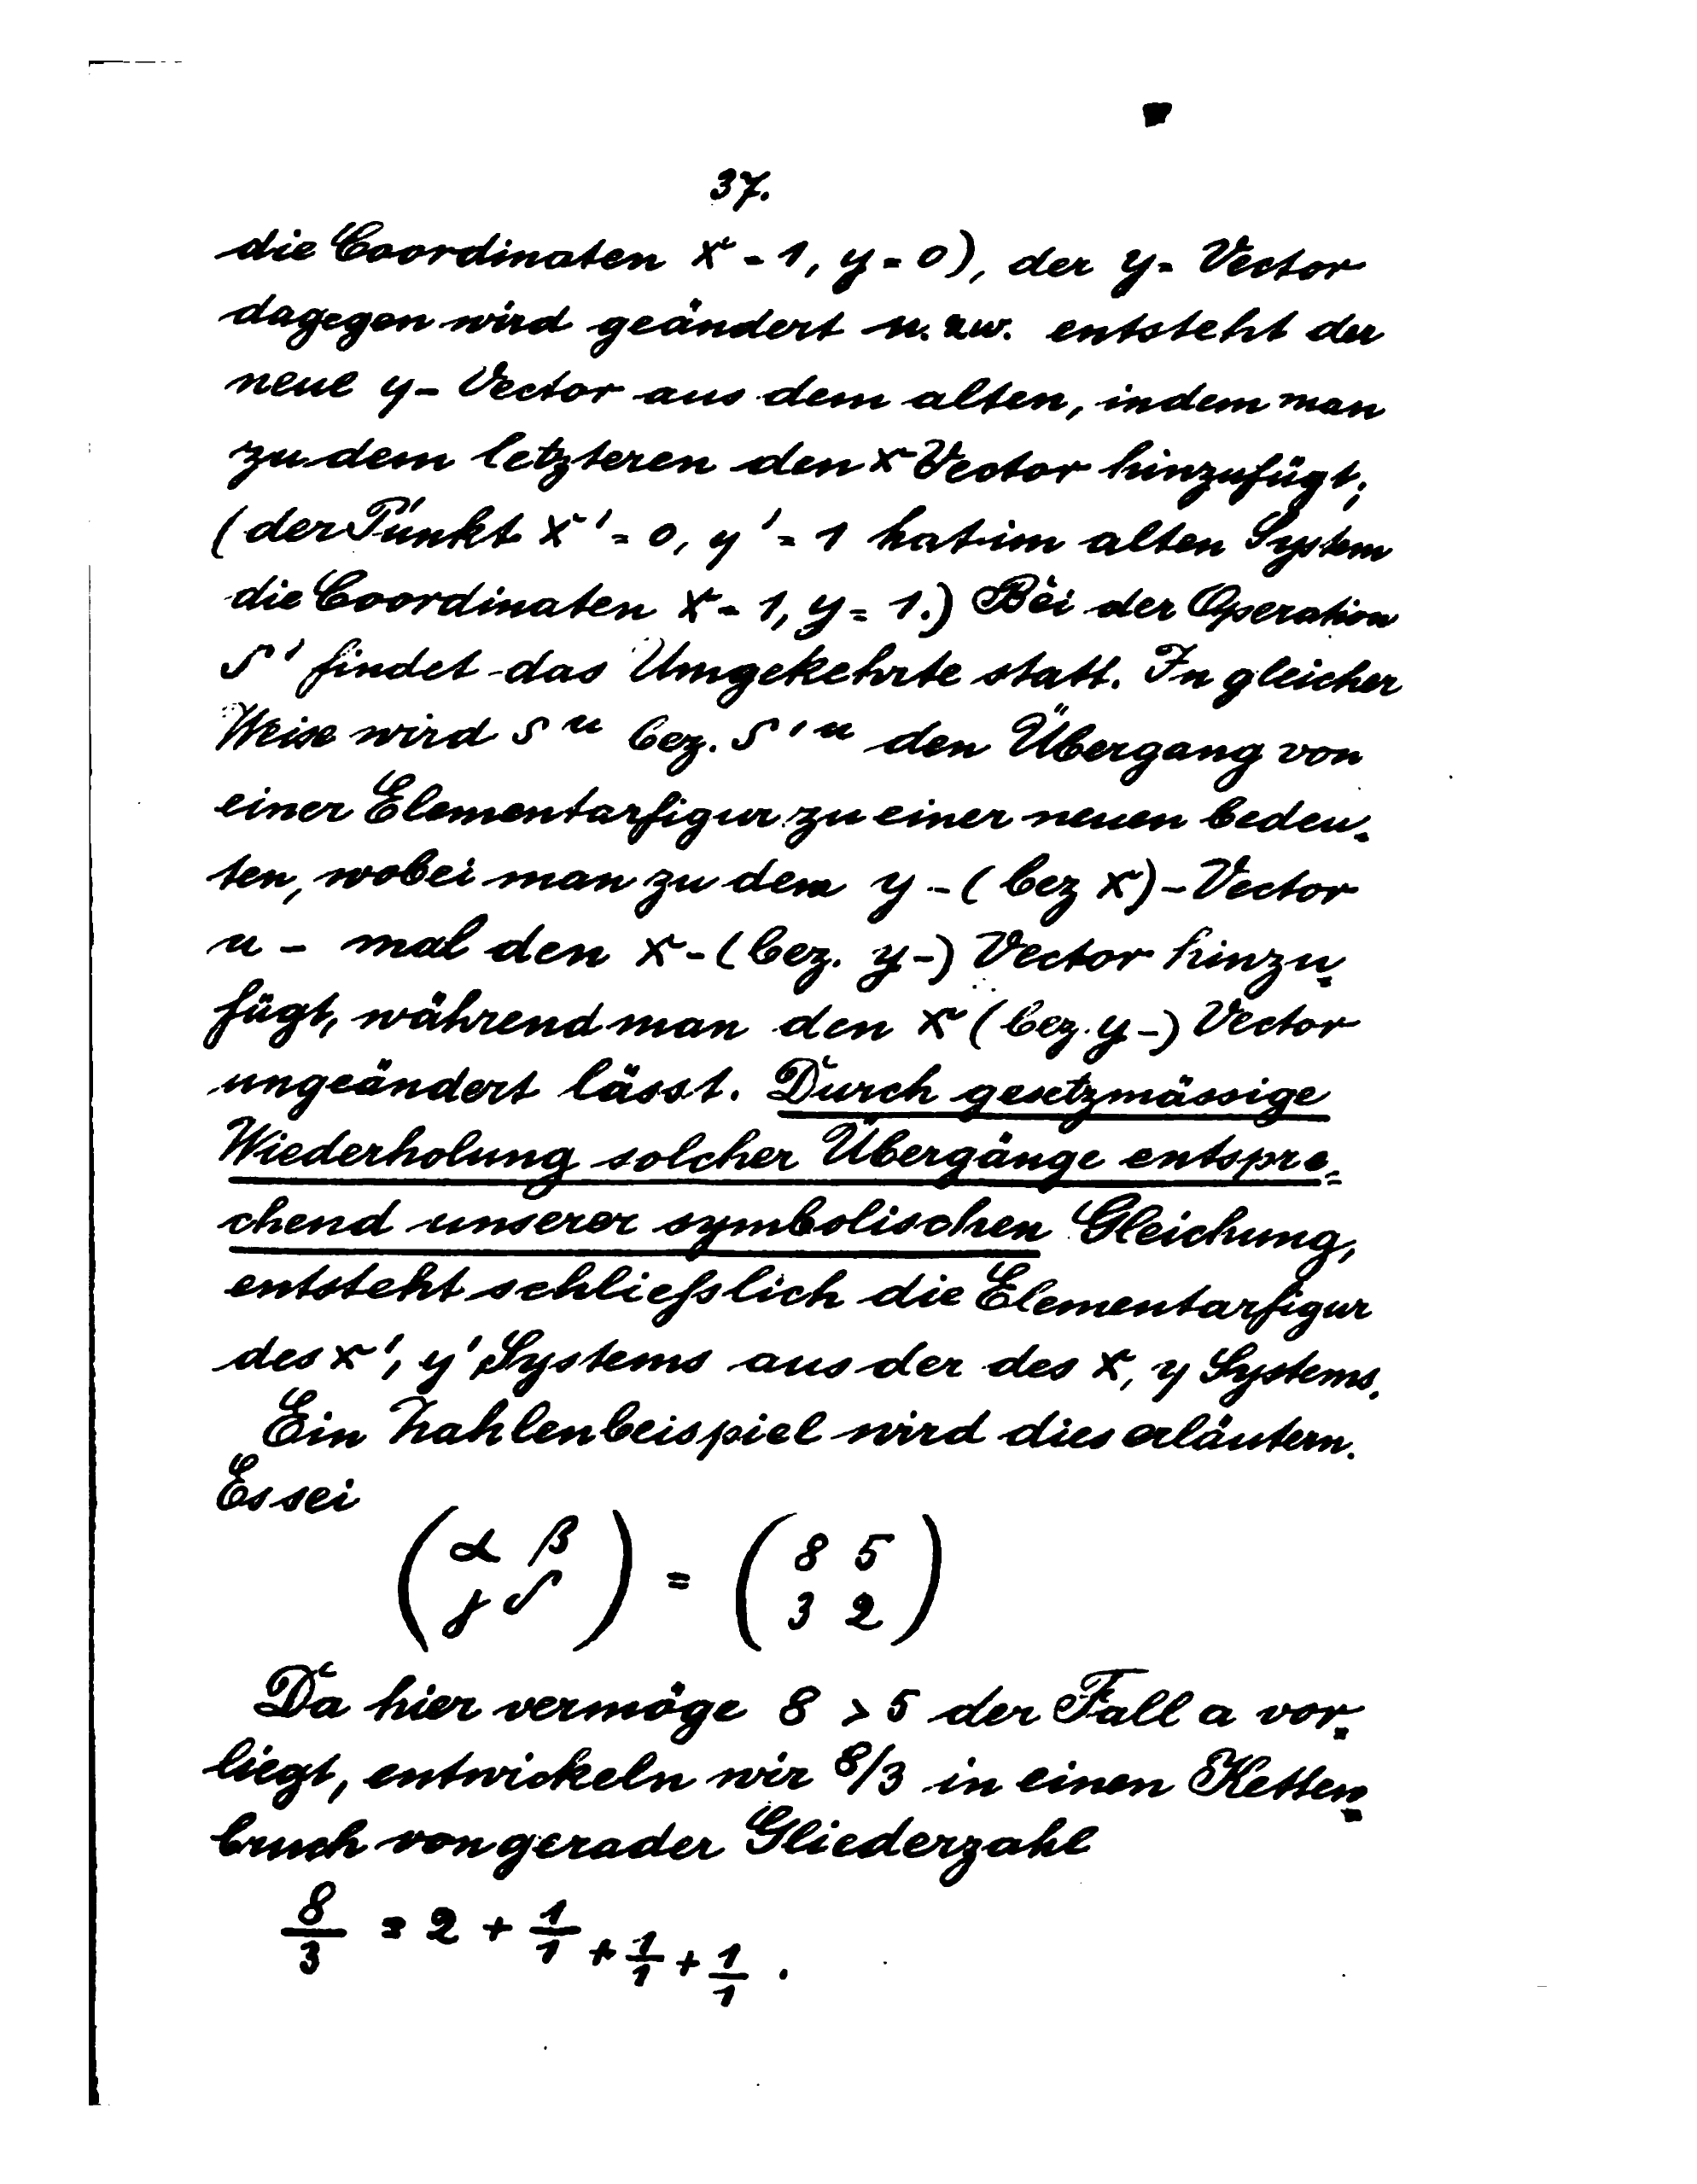 37.
die Coordinaten x = 1, y = 0), der y- Vector
dagegen wird geändert u. zw. entsteht der
neue y- Vector aus dem alten, indem man
zu dem letzteren den x Vector hinzufügt;
(der Punkt x' = 0, y' = 1 hat im alten System
die Coordinaten x = 1, y = 1.) Bei der Operation
S' findet das Umgekehrte statt. In gleicher
Weise wird S^u bez. S'^u den Übergang von
einer Elementarfigur zu einer neuen bedeu-
ten, wobei man zu dem y - (bez x) - Vector
u - mal den x - (bez. y -) Vector hinzu-
fügt, während man den x (bez. y -) Vector
ungeändert lässt. Durch gesetzmässige
Wiederholung solcher Übergänge entspre-
chend unserer symbolischen Gleichung,
entsteht schliesslich die Elementarfigur
des x', y' Systems aus der des x, y Systems.
Ein Zahlenbeispiel wird dies erläutern.
Es sei
(α β
γ δ) = (8 5
3 2)
Da hier vermöge 8 > 5 der Fall a vor-
liegt, entwickeln wir 8/3 in einen Ketten-
bruch von gerader Gliederzahl
8/3 = 2 + 1/1 + 1/1 + 1/1 .